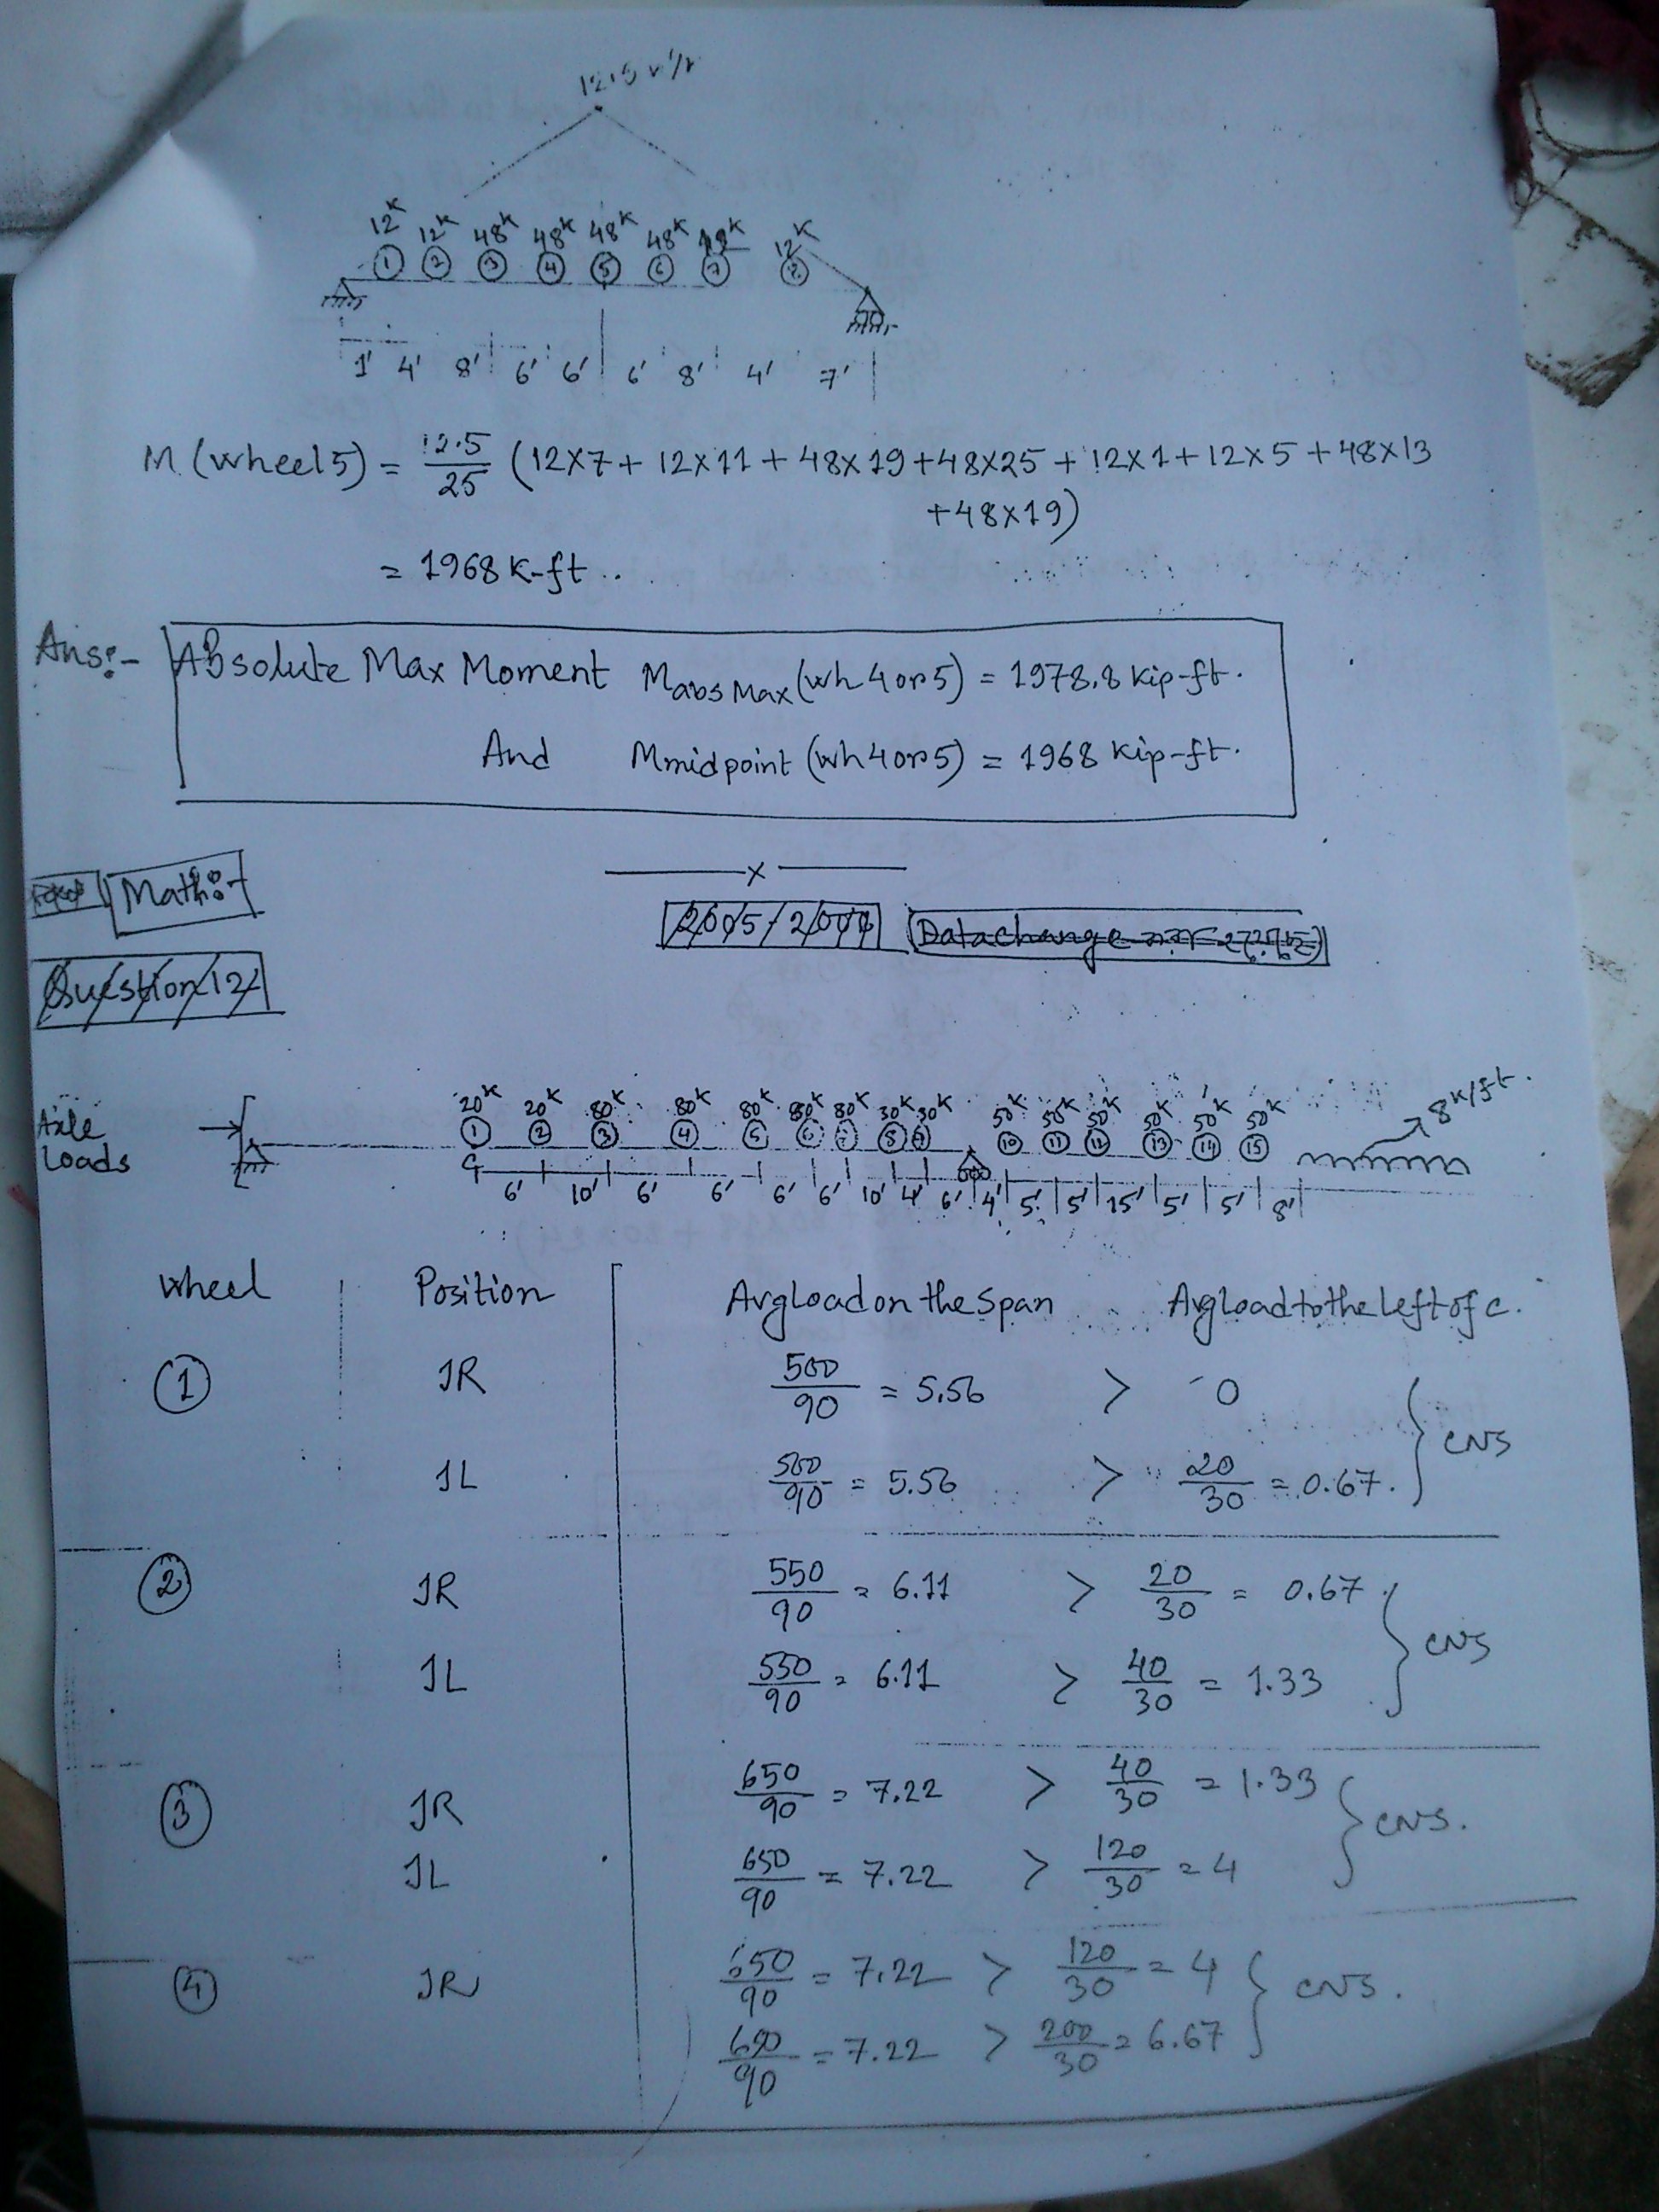 12.5 k/k
12K 12K 48K 48K 48K 48K 12K
1 2 3 4 5 6 7 8
1' 4' 8' 6' 6' 6' 8' 4' 7'
M (wheel 5) = 12.5/25 (12x7 + 12x11 + 48x19 + 48x25 + 12x1 + 12x5 + 48x13
+ 48x19)
= 1968 K-ft..
Ans:- Absolute Max Moment Mabs Max (wh 4 or 5) = 1978.8 kip-ft.
And Mmidpoint (wh 4 or 5) = 1968 kip-ft.
x
Math:-
2005/
Datachange
Question 12
20K 20K 80K 80K 80K 80K 80K 30K 30K 50K 50K 50K 50K 50K 50K 8K/ft.
Axle Loads
1 2 3 4 5 6 7 8 9 10 11 12 13 14 15
C
6' 10' 6' 6' 6' 6' 10' 4' 6' 4' 5' 5' 15' 5' 5' 8'
Wheel Position Avg Load on the Span Avg load to the Left of c.
1 JR 500/90 = 5.56 > 0
CNS
JL 500/90 = 5.56 > 20/30 = 0.67.
2 JR 550/90 = 6.11 > 20/30 = 0.67
CNS
JL 550/90 = 6.11 > 40/30 = 1.33
3 JR 650/90 = 7.22 > 40/30 = 1.33
CNS.
JL 650/90 = 7.22 > 120/30 = 4
4 JR 650/90 = 7.22 > 120/30 = 4
CNS.
650/90 = 7.22 > 200/30 = 6.67